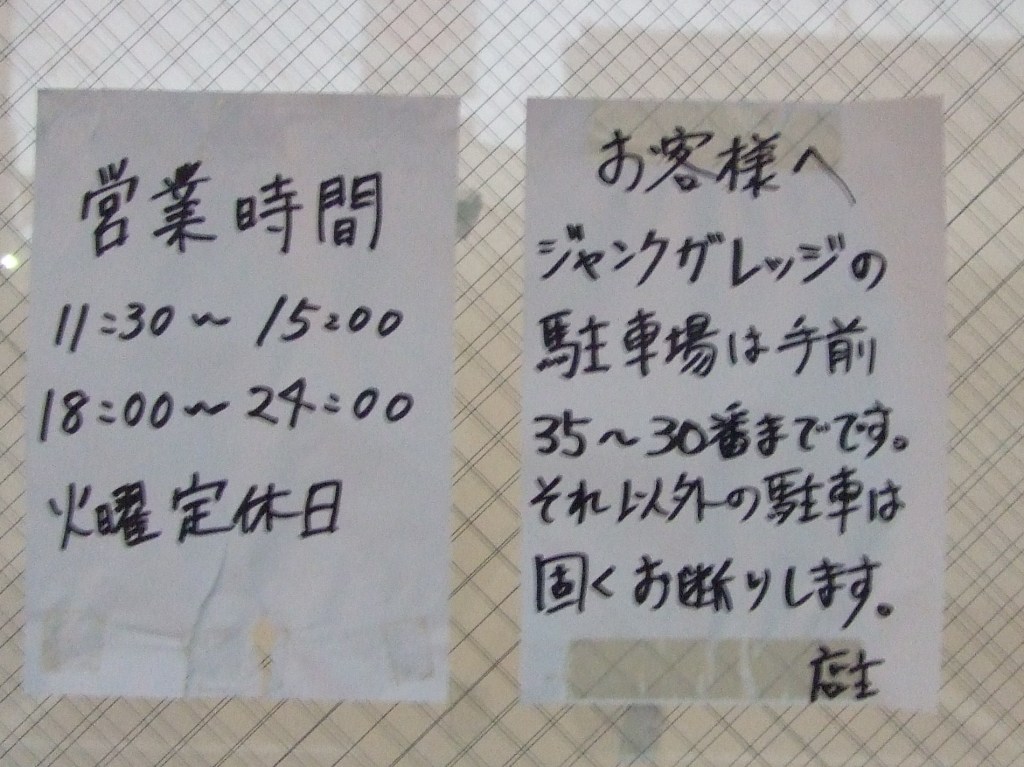 営業時間
11:30～15:00
18:00～24:00
火曜定休日
お客様へ
ジャンクガレッジの
駐車場は手前
35～30番までです。
それ以外の駐車は
固くお断りします。
店主